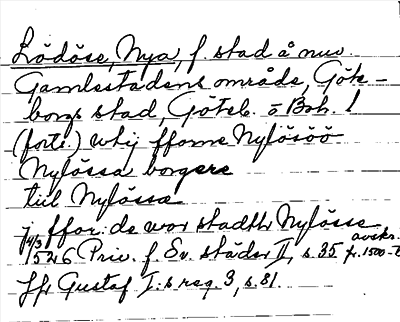 Lödöse, Nya, f. stad å nuv.
Gamlestadens område, Göte-
borgs stad, Göteb. o Boh. l
(forts.) whij fforne Nylösöö
Nylössa borgere
tiil Nylössa
ffor: de wor stadth Nylösse
14/3 1526 Priv. f. Sv. städer II, s. 35 avskr. fr. 1500-t
Jfr Gustaf I:s reg. 3, s. 81.